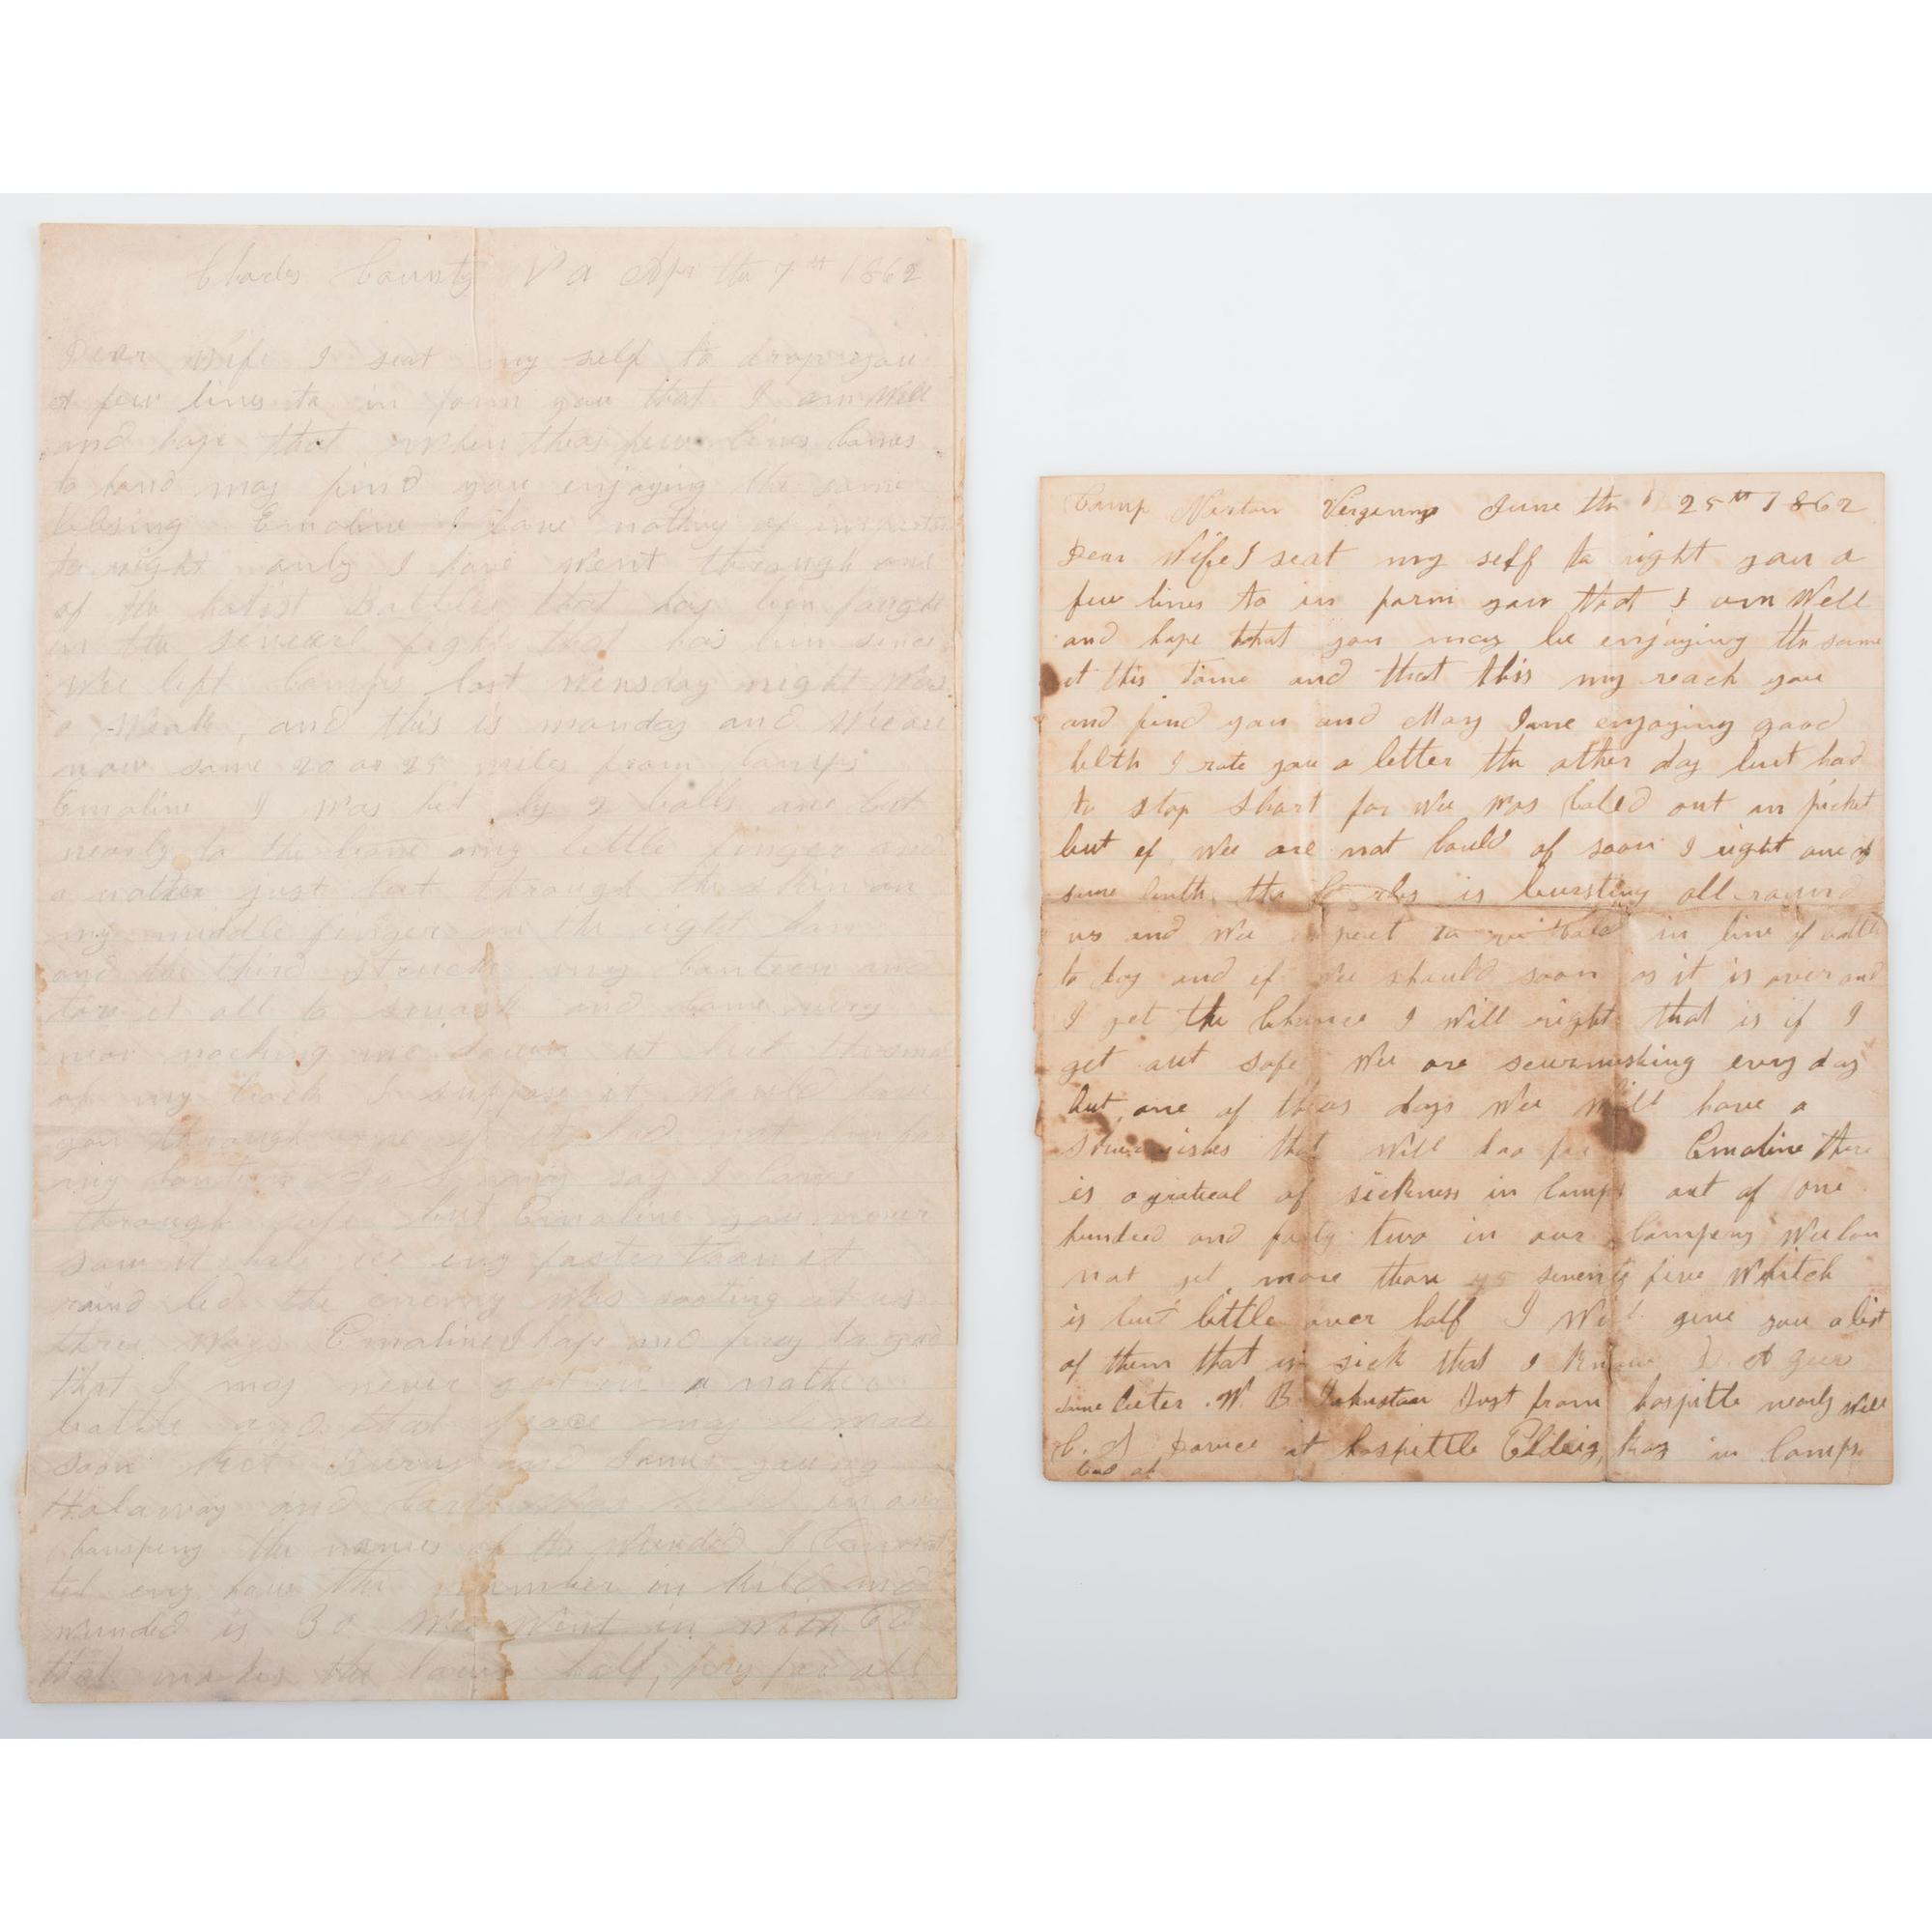 Charles County Va Apr the 7th 1862
Dear Wife I seat my self to drop you
a few lines to in form you that I am Well
and hope that when theas few lines Comes
to hand may find you enjoying the same
blesing Emaline I have nothing of
to right only I have Went through one
of the Battles that has bin faught
in the fight that has bin since
Wee left Camps last Wensday night Was
a Weak, and this is monday and Wee are
now some 20 or 25 miles from Camps
Emaline I Was hit by 2 balls one cut
nearly to the bone on my little finger and
a nother just cut through the skin on
my middle finger on the right han
and the third struck my Canteen and
tore it all to smash and Came very
near nocking me down it hit the smal
of my back I suppose it Would have
gon through me if it had not bin for
my Canteen so I may say I Came
through safe but Emaline you never
saw it hale ice eny faster than it
raind led the enemy Was sooting at us
three Ways Emaline I hope and prey to god
that I may never get in a nother
battle and that peace may be made
soon and James young
Halaway and Was kild in our
Compeny the names of the Wunded I Can not
tel eny how the number in kild and
Wunded is 30 Wee Went in With 60
that makes the loss half, prey for all
Camp Verginny June the 25th 1862
Dear Wife I seat my self to right you a
few lines to in form you that I am Well
and hope that you may be enjoying the same
at this time and that this my reach you
and find you and Mary Jane enjoying good
helth I rote you a letter the other day but had
to stop short for Wee Was Caled out on picket
but if Wee are not Cauld of soon I right one of
some lenth the is bursting all round
us and Wee expect to be Cald in line of battle
to day and if Wee should soon as it is over and
I get the Chance I Will right that is if I
get out safe Wee are scurmishing every day
but one of theas days Wee Will have a
that Will doo for Emaline there
is a grateal of sickness in Camps out of one
hundred and forty two in our Compeny Wee Can
not get more than seventy five Whitch
is but little over half I Will give you a list
of them that is sick that I know J. A Geer
W. B. Johnston Just from hospitle nearly Well
C. J at hospittle has in Camps